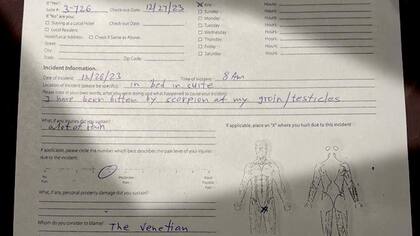 If "Yes":
Suite #: 3-726 Check-out Date: 12/27/23
If "No" are you:
Staying at a Local Hotel Check-out Date:
Local Resident
Hotel/Local Address: Check if Same as Above.
Street:
City:
State: Zip Code:
Sunday Hours:
Monday Hours:
Tuesday Hours:
Wednesday Hours:
Thursday Hours:
Friday Hours:
Saturday Hours:
Incident Information.
Date of Incident: 12/26/23 Time of Incident: 8 Am
Location of Incident (please be specific): in bed in suite
I have been bitten by scorpion at my groin/testicles
What, if any injuries did you sustain?
a lot of Pain
If applicable, place an "X" where you hurt due to this incident:
If applicable, please circle the number which best describes the pain level of your injuries
due to the incident:
No Pain Moderate Pain Worst Possible Pain
What, if any, personal property damage did you sustain?
Whom do you consider to blame? The Venetian